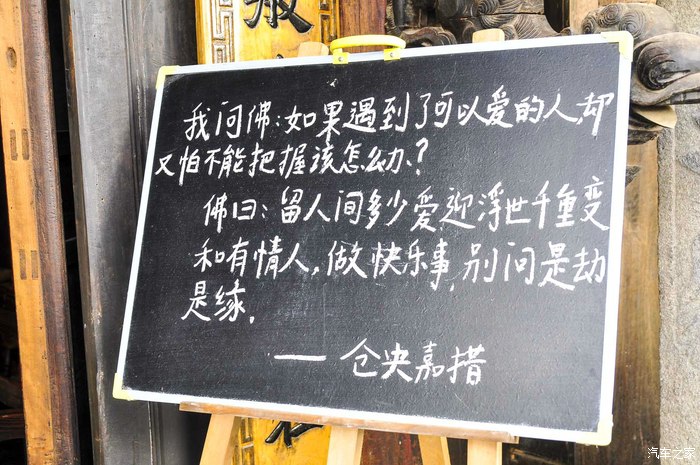 般
我问佛:如果遇到了可以爱的人,却
又怕不能把握该怎么办?
佛曰:留人间多少爱,迎浮世千重变
和有情人,做快乐事,别问是劫
是缘.
——仓央嘉措
汽车之家